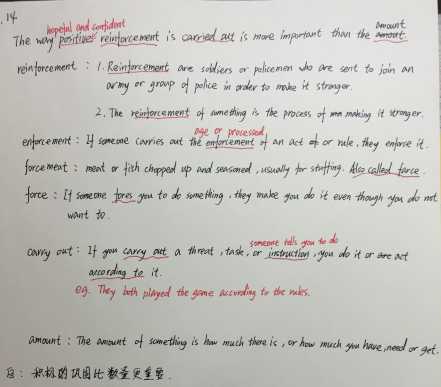 .14
hopeful and confident
amount
The way positive reinforcement is carried out is more important than the amount.
reinforcement : 1. Reinforcement are soldiers or policemen who are sent to join an
army or group of police in order to make it stronger.
2. The reinforcement of something is the process of making it stronger.
age or processed
enforcement : If someone carries out the enforcement of an act or rule, they enforce it.
forcemeat : meat or fish chopped up and seasoned, usually for stuffing. Also called farce.
force : If someone fores you to do something, they make you do it even though you do not
want to.
someone tells you to do
carry out : If you carry out a threat, task, or instruction, you do it or act
according to it.
eg. They both played the game according to the rules.
amount : The amount of something is how much there is, or how much you have, need or get.
积极的巩固比数量更重要.